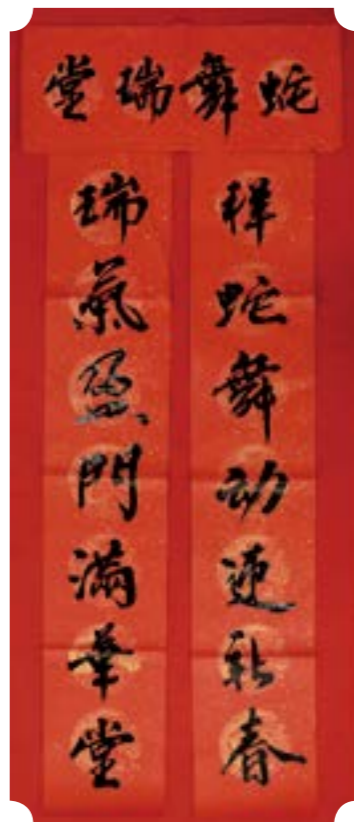 蛇舞瑞堂
祥蛇舞动迎新春
瑞氣盈門滿華堂